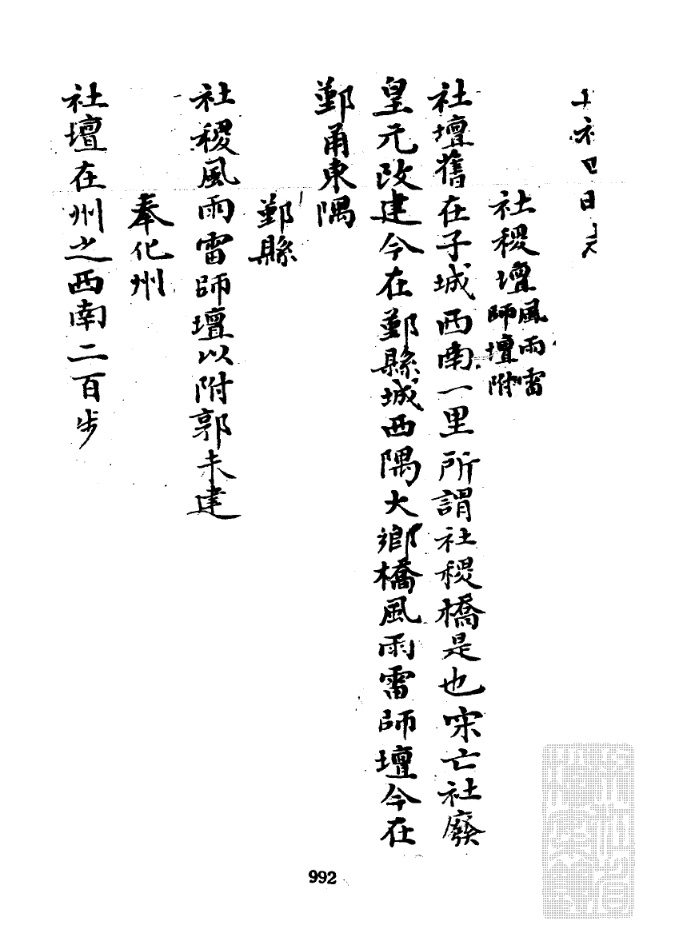 社稷壇風雨雷師壇附
社壇舊在子城西南一里所謂社稷橋是也宋亡社廢
皇元改建今在鄞縣城西隅大鄉橋風雨雷師壇今在
鄞甬東隅
鄞縣
社稷風雨雷師壇以附郭未建
奉化州
社壇在州之西南二百步
992